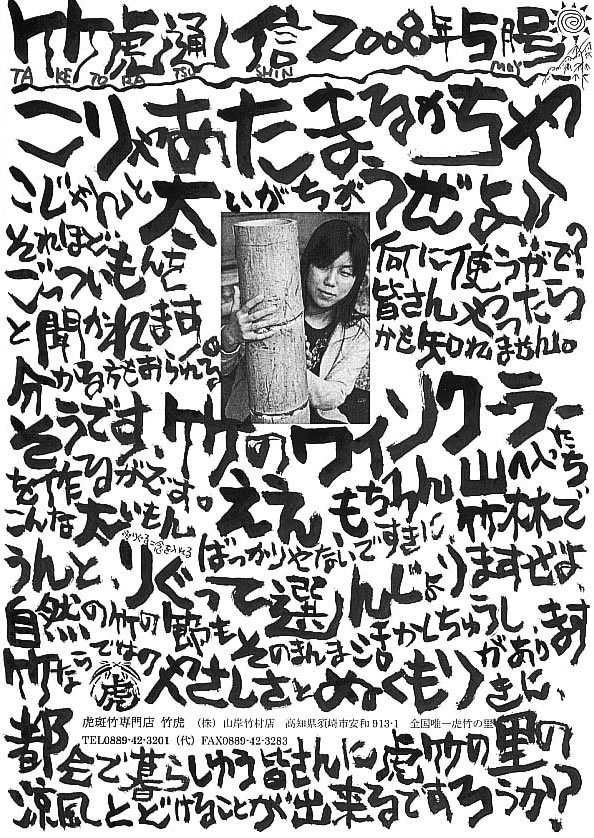 竹虎通信2008年5月号
TA KE TO RA TSU SHIN MAY
こりゃあたまるかちや
こじゃんと太いがちがうぜよ!!
それほど、
ごっついもんを
何に使うがで?
と聞かれます。
皆さんやったら
分かる方もおられる
かも知れません。
そうです、竹のワインクーラー
を作てるがです。ええ もちろん
こんな太いもん
ばっかりやないですきに
山へ
竹林で
※りぐる=念を入れる
うんと、りぐって選んじょりますぜよ
自然の竹の節もそのまんま活かしちゅうし
竹ならではのやさしさとぬくもりがあり
ますきに、
虎
虎斑竹専門店 竹虎 (株)山岸竹材店 高知県須崎市安和913-1 全国唯一虎竹の里
TEL0889-42-3201(代) FAX0889-42-3283
都会で暮らしゆう皆さんに虎竹の里の
涼風とどけることが出来るですろうか?